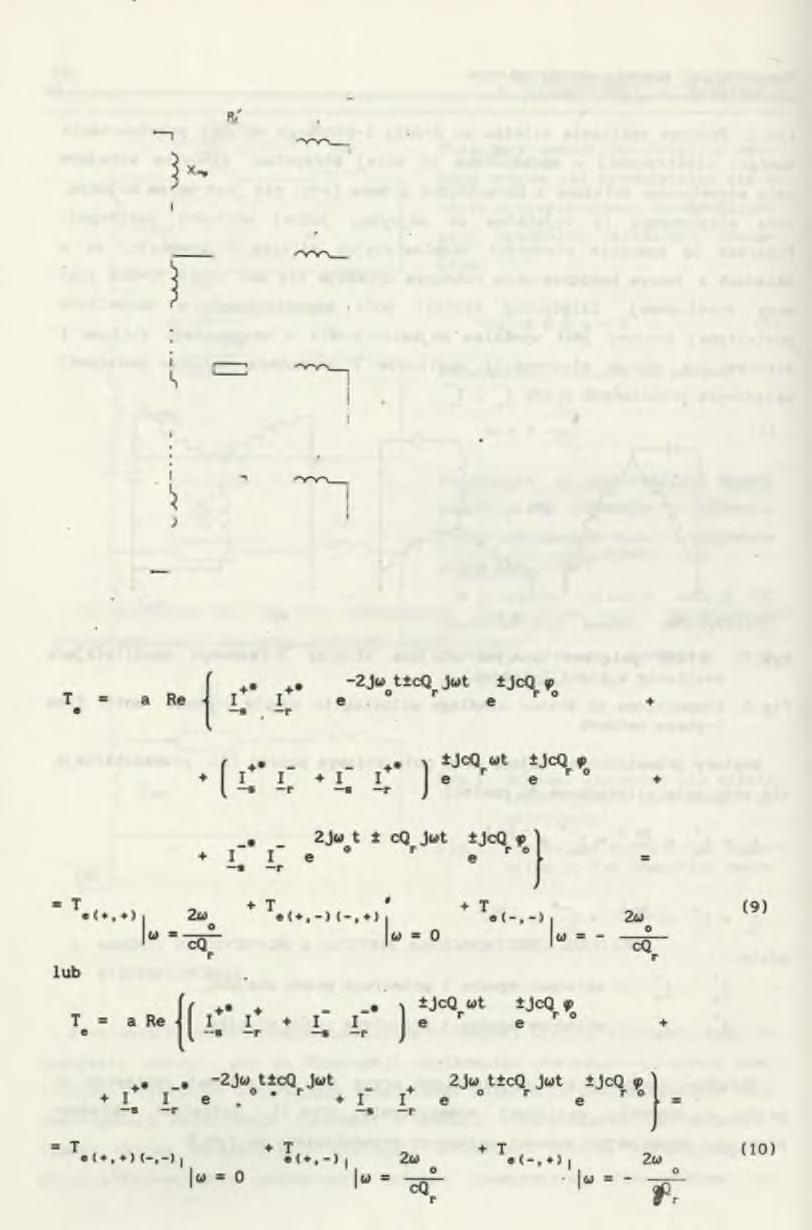 R′
X
T_e = a Re { I_s^{+*} I_r^{+*} e^{-2jω_o t±cQ_r jωt} e^{±jcQ_r φ_o} +
+ ( I_s^{+*} I_r^{-} + I_s^{-} I_r^{+*} ) e^{±jcQ_r ωt} e^{±jcQ_r φ_o} +
+ I_s^{-*} I_r^{-} e^{2jω_o t ± cQ_r jωt} e^{±jcQ_r φ_o} } =
= T_{e(+,+)} |ω = 2ω_o/cQ_r + T_{e(+,-)(-,+)} |ω = 0 + T_{e(-,-)} |ω = - 2ω_o/cQ_r (9)
lub
T_e = a Re { ( I_s^{+*} I_r^{+} + I_s^{-} I_r^{-*} ) e^{±jcQ_r ωt} e^{±jcQ_r φ_o} +
+ I_s^{+*} I_r^{-*} e^{-2jω_o t±cQ_r jωt} + I_s^{-} I_r^{+} e^{2jω_o t±cQ_r jωt} e^{±jcQ_r φ_o} } =
= T_{e(+,+)(-,-)} |ω = 0 + T_{e(+,-)} |ω = 2ω_o/cQ_r + T_{e(-,+)} |ω = - 2ω_o/cQ_r (10)